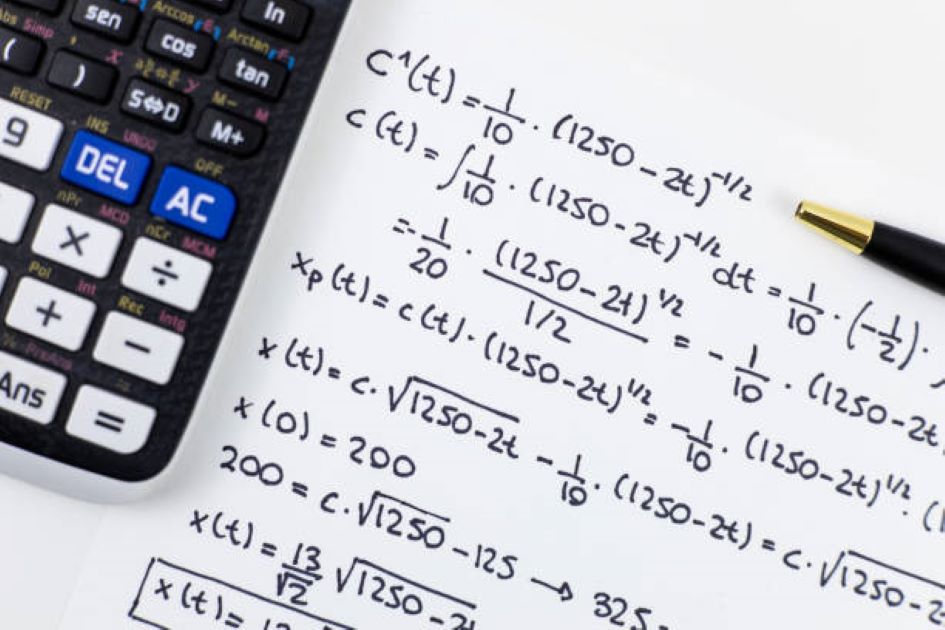 ln
sen
Arccos
cos
Arctan
tan
Simp
(
)
x
y
S⇔D
M−
M
M+
RESET
9
INS
UNDO
DEL
OFF
AC
nPr
MCD
×
nCr
MCM
÷
Pol
Int
+
Rec
Intg
−
Ans
=
C'(t) = 1/10 · (1250 − 2t)^-1/2
c(t) = ∫ 1/10 · (1250 − 2t)^-1/2 dt = 1/10 · (−1/2) ·
= − 1/20 · (1250 − 2t)^1/2 / 1/2 = − 1/10 · (1250 − 2t
xp(t) = c(t) · (1250 − 2t)^1/2 = − 1/10 · (1250 − 2t)^1/2 · (1
x(t) = c · √1250 − 2t − 1/10 · (1250 − 2t) = c · √1250 − 2
x(0) = 200
200 = c · √1250 − 125 → 325
x(t) = 13/√2 √1250 − 2t
x(t) =